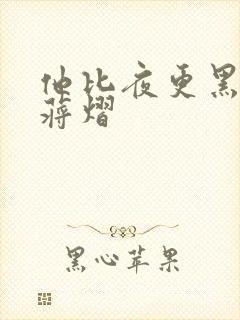 他比夜更黑
蒋熠
黑心苹果